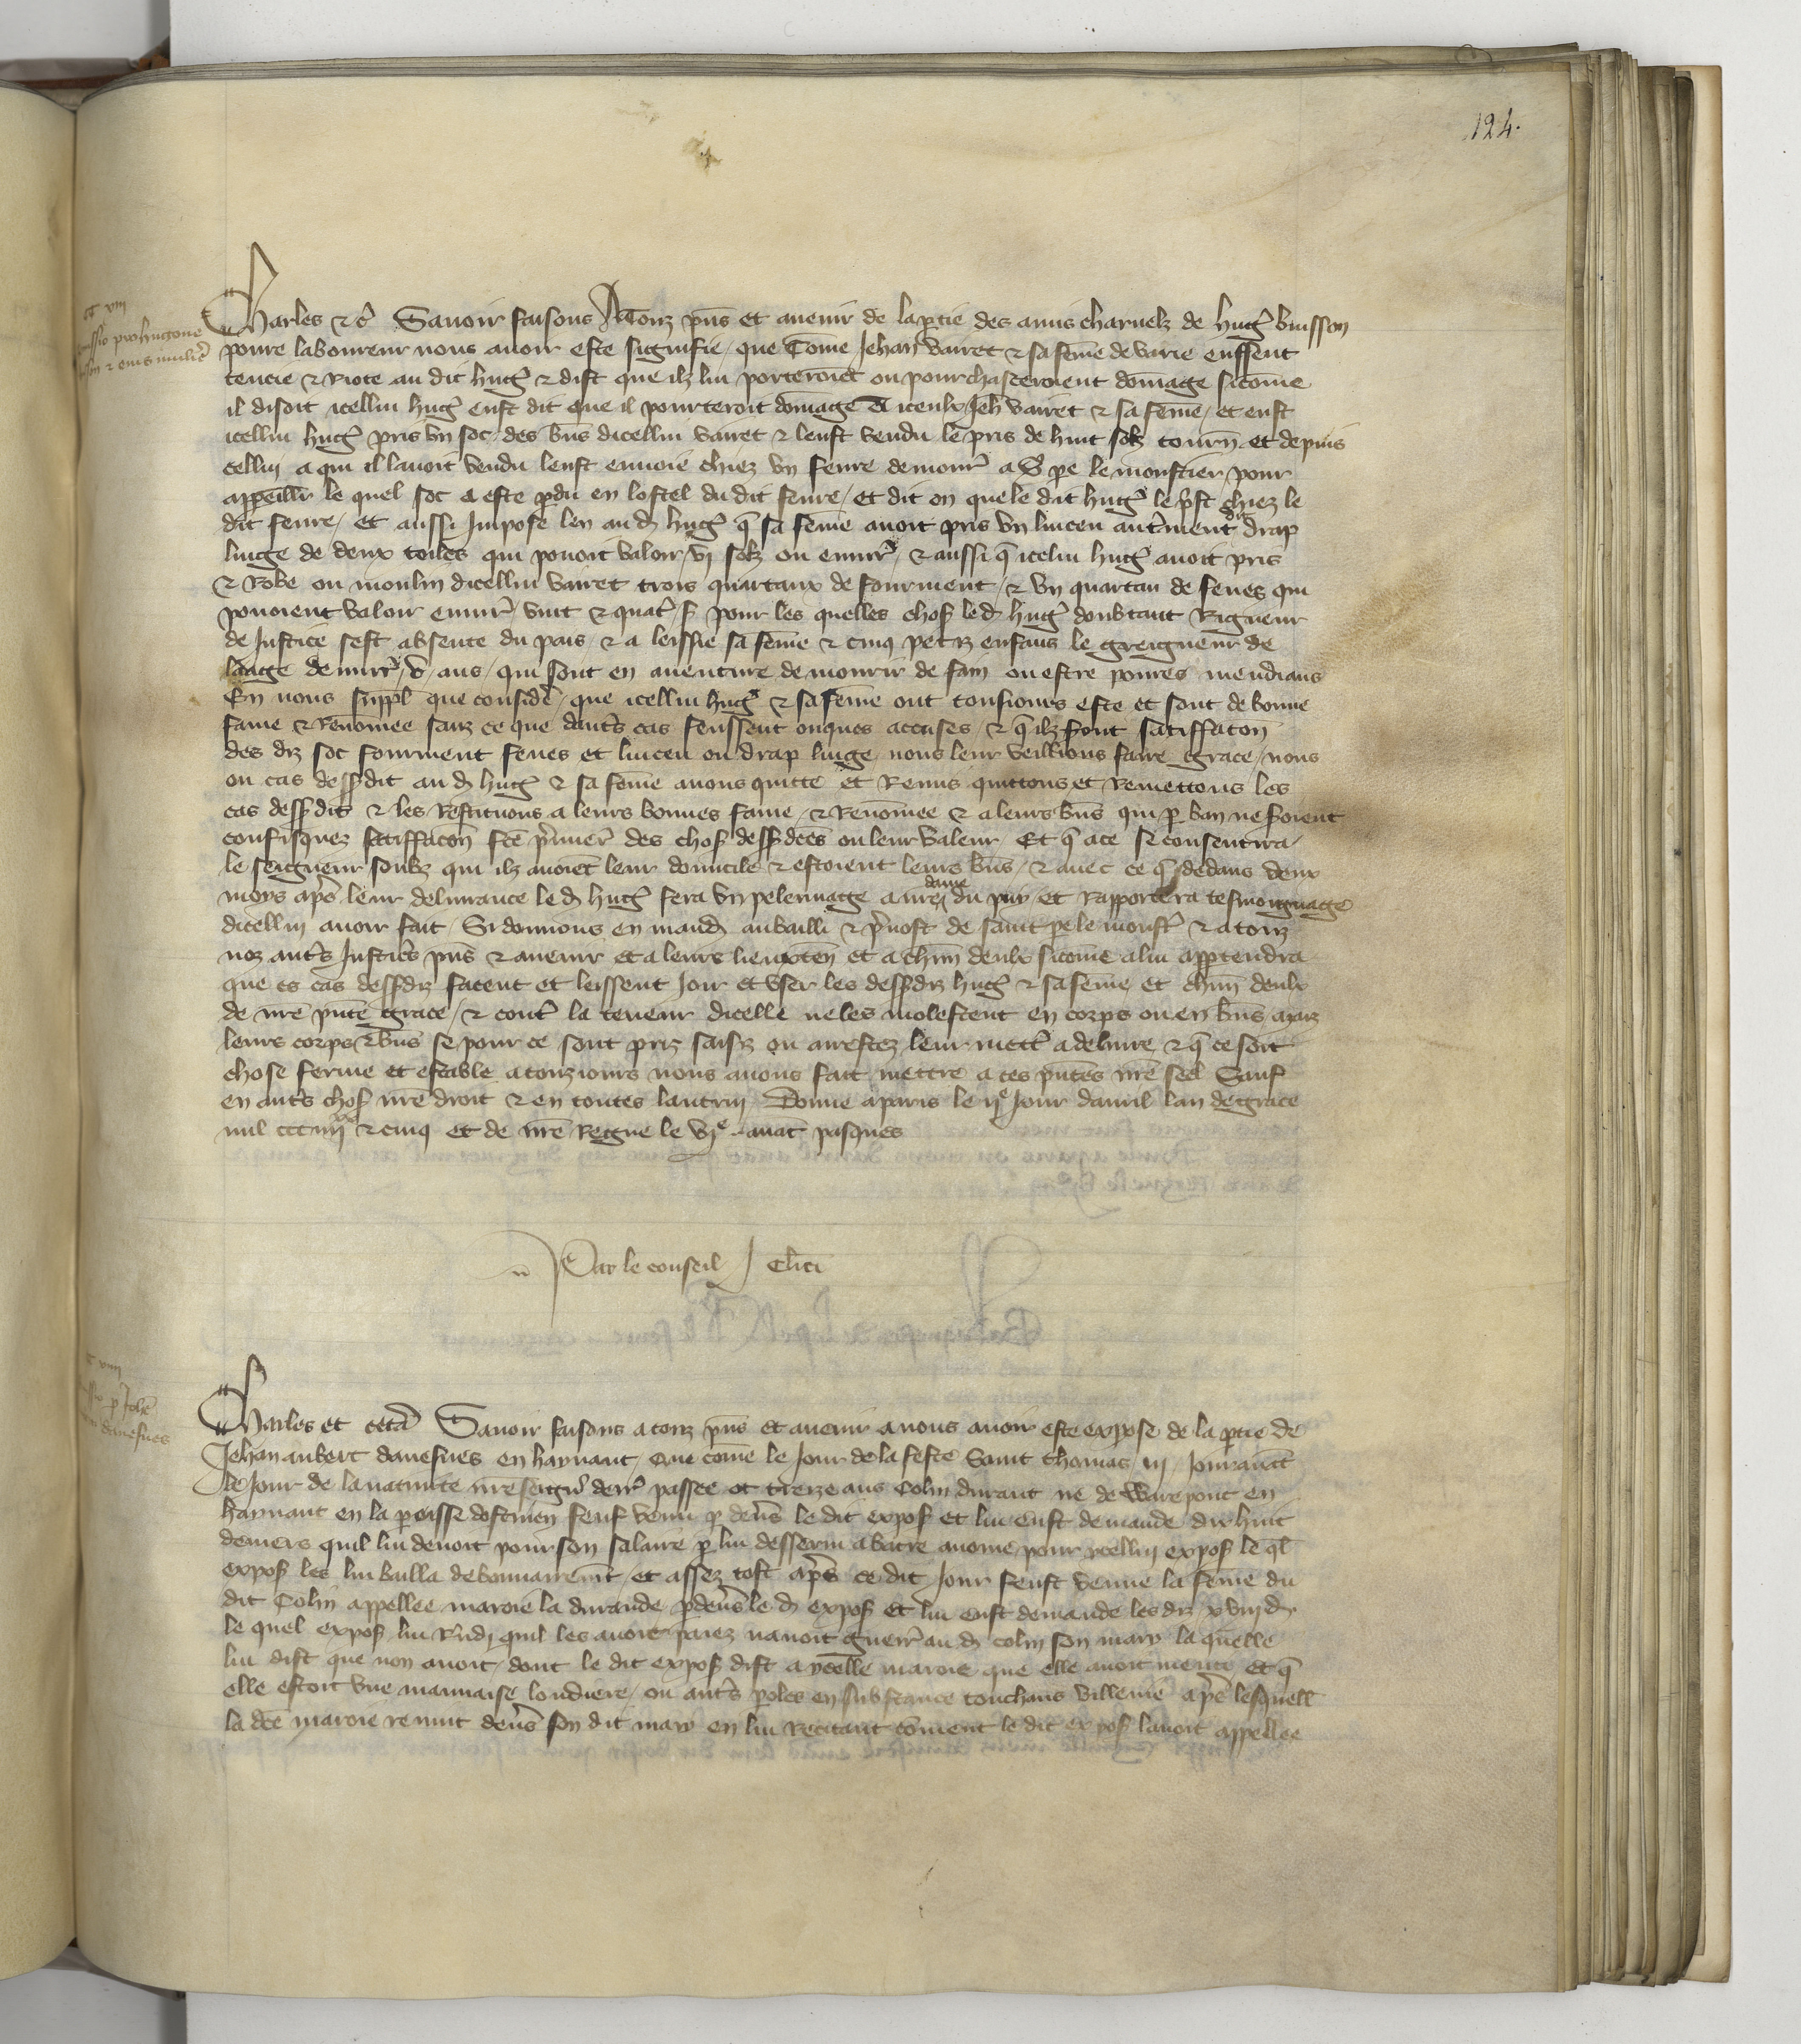 124.
Charles &c̃ Sauoir faisons A Touz pñs et auenir de la ꝑtie des amis charnelz de hug̃ buisson
poure laboureur nous auoir este signifie / que Com̃e Jehan vairet & sa fem̃e de varie eussent
tencie & Riote au dit hug̃ & dist que ilz lui porteroiẽt ou pourchasceroient dom̃age sicom̃e
il disoit icellui hug̃ eust dit que il pourteroit dom̃age a iceulx Jeh̃ vairet & sa fem̃e / et eust
icellui hug̃ pris vn soc des biñs dicellui vairet & leust vendu le pris de huit solz tourñ. et depuis
cellui a qui il lauoit vendu leust enuoie chiez vn feure demour̃ a S̃ pẽ le monstier / pour
appeillr̃ le quel soc a este ꝑdu en lostel du dit feure / et dit on que le dit hug̃ le p̃st chiez le
dit feure / et aussi Impose len au d̃ hug̃ q̃ sa fem̃e auoit pris vn linceu aut̃ment dit drap
linge de deux toiles qui pouoit valoir / vj solz ou enuir̃ / & aussi q̃ icelui hug̃ auoit pris
& Robe ou moulin dicellui vairet trois quartaux de fourment / & vn quartau de feues qui
pouoient valoir enuir̃ vint & quat̃ s̃ pour les quelles chos̃ led̃ hug̃ doubtant Rigueur
de Justice sest absente du pais / & a leissie sa fem̃e & cinq petiz enfans le greigneur de
laage denuir̃ / v / ans / qui sont en auenture de mourir de fain ou estre poures mendians
En nous suppl̃ que consider̃ / que icellui hug̃ & sa fem̃e ont tousiours este et sont de bonne
fame & Renom̃ee sanz ce que daut̃s cas feussent onques accuses / & q̃ ilz f̃ont satiffacõn
des diz soc fourment feues et linceu ou drap linge / nous leur veillions faire grace / nous
ou cas dess̃dit au d̃ hug̃ & sa fem̃e auons quitte et Remis quittons et Remettons les
cas dess̃dits & les Restituons a leurs bonnes fame / & Renom̃ee & a leurs biñs qui ꝑ ban ne seroient
confisquez satiffacõn fcẽ p̃mier̃ des chos̃ dess̃dcẽs ou leur valeur Et q̃ ace se consentira /
le seigneur soubz qui ilz auoiẽt leur domicile & estoient leurs biñs / & auec ce q̃ dedans deux
moys ap̃s leur deliurance le d̃ hug̃ fera vn pelerinage a nr̃e dame du puy et Rapportera tesmoignage
dicellui auoir fait / Si donnons en mand̃ au bailli & p̃uost de saint pẽ le monst̃ & a touz
noz aut̃s Justic̃s pñs & auenir et a leurs lieuxteñ et a chũn deulx sicom̃e a lui appartendra
que es cas dess̃diz facent et leissent Joir et vser les dess̃diz hug̃ & sa fem̃e et chũn deulx
de nr̃e pñte grace / & cont̃ la teneur dicelle ne les molestent en corps ou en biñs maiz
leurs corps & biñs se pour ce sont priz saisiz ou arrestez leur mett̃ a deliure & q̃ ce soit
chose ferme et estable a touziours nous auons fait mettre a ces pñtes nr̃e seel Sauf
en aut̃s chos̃ nr̃e droit & en toutes lautruy Donne a paris le ije Jour dauril lan de grace
mil ccc iiijxx & cinq et de nr̃e Regne le vje auãt pasques
Par le conseil / J Clici
Charles et ceteã Sauoir faisons a touz pñs et auenir a nous auoir este expose de la ꝑtie de
Jehan aubert dauesnes en haynaut / Que com̃e le Jour de la feste Saint thomas iij Jour auãt
le Jour de la natiuite nr̃e seigr̃ derr̃ passee ot treize ans Colin durant ne de Warepont en
haynaut en la ꝑoisse dostrien feust venu ꝑ deũs le dit expos̃ et lui eust demande dix huit
deniers quil lui deuoit pour son salaire ꝑ lui desserui a batre auoine pour ycellui expos̃ le q̃l
expos̃ les lui bailla debonnairem̃t / et assez tost ap̃s ce dit Jour feust venue la fem̃e du
dit Colin appellee maroie la durande ꝑ deũs le d̃ expos̃ et lui eust demande les diz xviij d̃.
le quel expos̃ lui Rñdi quil les auoit paiez nauoit gueir̃ au d̃ colin son mary la quelle
lui dist que non auoit / dont le dit expos̃ dist a ycelle maroie que elle auoit menti et q̃
elle estoit vne mauuaise loudiere / ou aut̃s ꝑoles en substance touchans villenie ap̃s lesquell̃
la dcẽ maroie reuint deũs son dit mary en lui Recitant com̃ent le dit expos̃ lauoit appellee